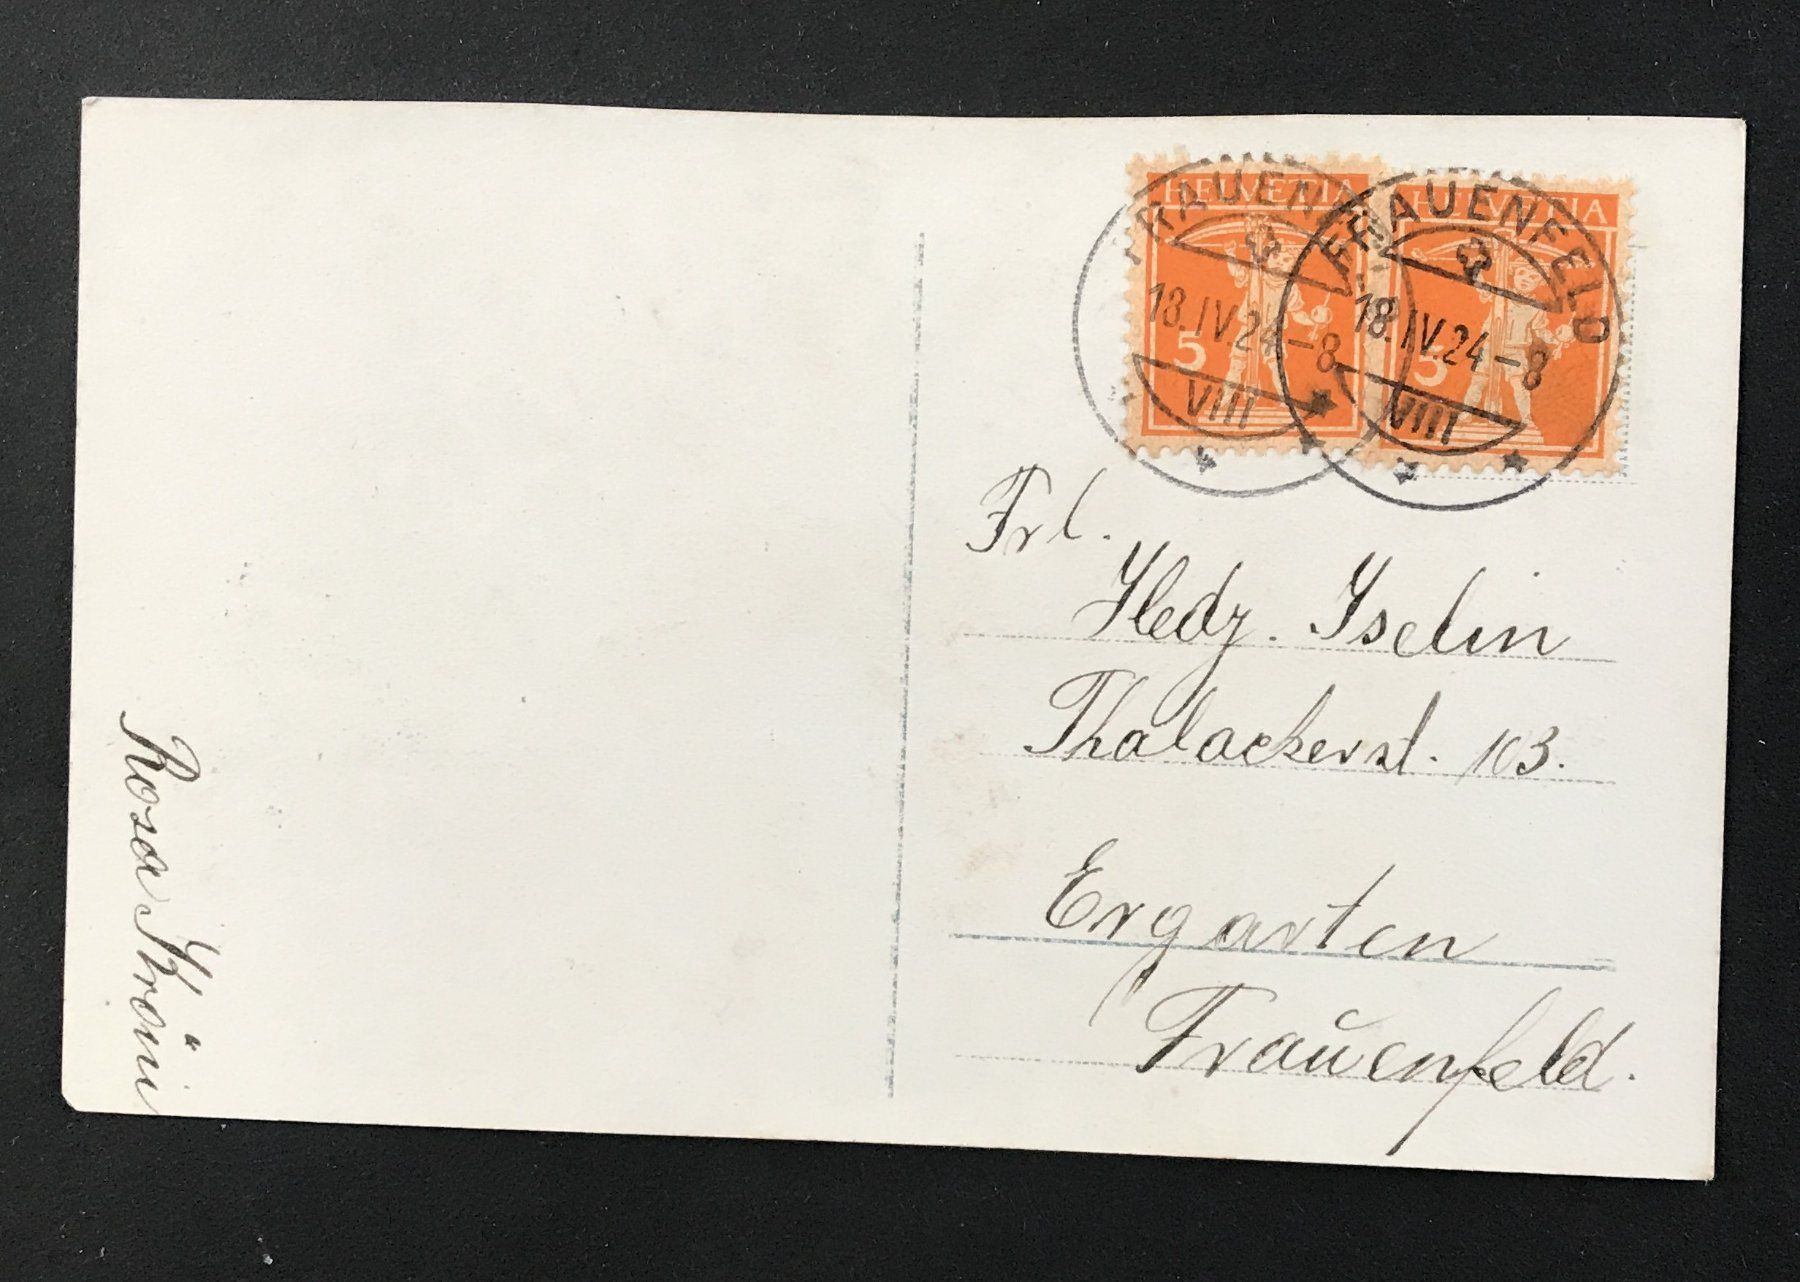 HELVETIA HELVETIA
5 5
FRAUENFELD
18.IV.24-8
VIII
FRAUENFELD
18.IV.24-8
VIII
Frl.
Hedy. Iselin
Thalackerst. 103.
Ergarten
Frauenfeld.
Rosa